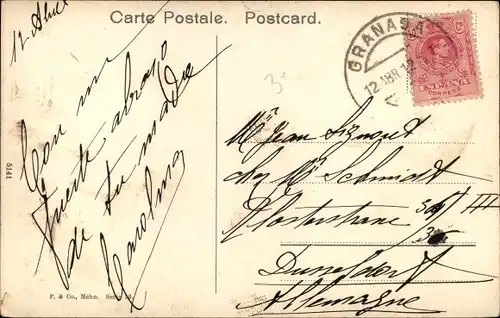 Carte Postale. Postcard.
12 Abril
Con un
fuerte abrazo
de tu madre
Carolina
5141
P. & Co., Mchn. Serie
GRANADA
12 ABR 12
ESPAÑA
CORREOS
Mr Jean
chez Mr Schmidt
Klosterstrasse 36 III
Dusseldorf
Allemagne